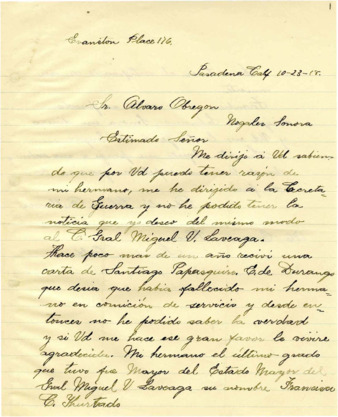 1
Evanston Place 176.
Pasadena Calf 10-28-18.
Sr. Alvaro Obregon
Nogales Sonora
Estimado Señor
Me dirijo á Ud sabien-
do que por Vd puedo tener razón de
mi hermano, me he dirigido á la Secreta-
ria de Guerra y no he podido tener la
noticia que yo deseo del mismo modo
al C. Gral Miguel V. Laveaga.
Hace poco mas de un año recivi una
carta de Santiago Papasquiro, E. de Durango
que decia que habia fallecido mi herma-
no en comición de servicio y desde en-
tonces no he podido saber la verdad
y si Vd me hace ese gran favor le vivire
agradecida. Me hermano el ultimo grado
que tuvo fue Mayor del Estado Mayor del
Gral Miguel V. Laveaga su nombre Francisco
C. Hurtado